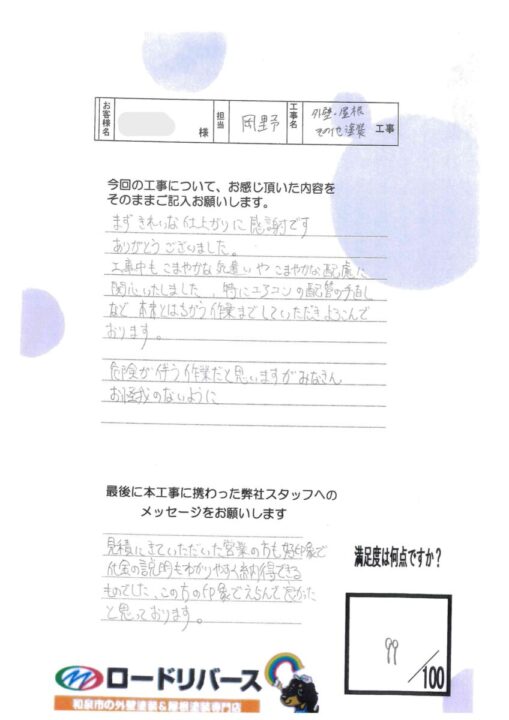 お客様名 様 担当 岡野 工事名 外壁・屋根 その他塗装 工事
今回の工事について、お感じ頂いた内容を
そのままご記入お願いします。
まず きれいな 仕上がりに 感謝です
ありがとうございました。
工事中も こまやかな 気遣い や こまやかな配慮に
関心いたしました、特にエアコンの配管の手直し
など 本来とはちがう作業までしていただき よろこんで
おります。
危険が伴う作業だと思いますがみなさん
お怪我のないように
最後に本工事に携わった弊社スタッフへの
メッセージをお願いします
見積にきていただいた営業の方も好印象で
代金の説明もわかりやすく納得できる
ものでした、この方の印象でえらんで良かった
と思っております。
満足度は何点ですか?
99/100
ロードリバース
和泉市の外壁塗装&屋根塗装専門店